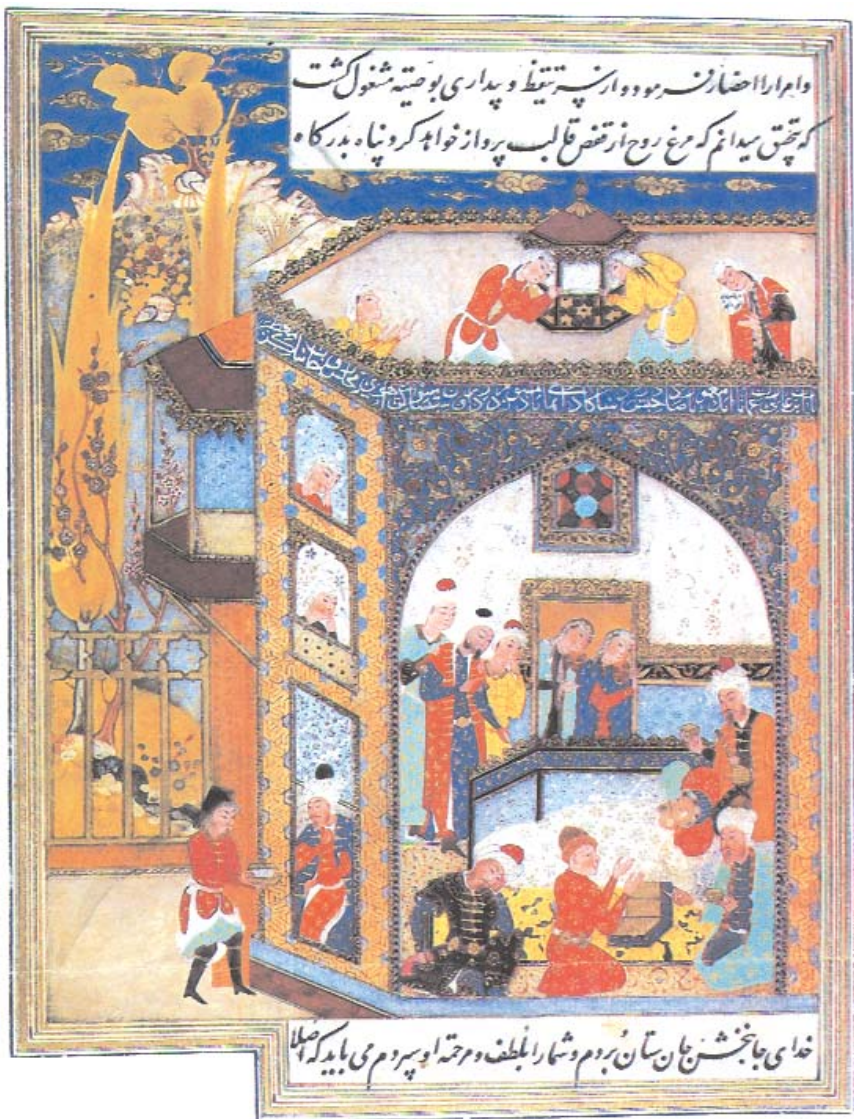 وامرا را احضار فرمود و از سر تیقظ و بیداری بوصیة مشغول کشت
که بتحقیق میدانم که مرغ روح از قفص قالب پرواز خواهد کرد و پناه بدرکاه
خدای جانبخش جان ستان بردم و شما را بلطف و مرحمة او سپردم می باید که اصلا